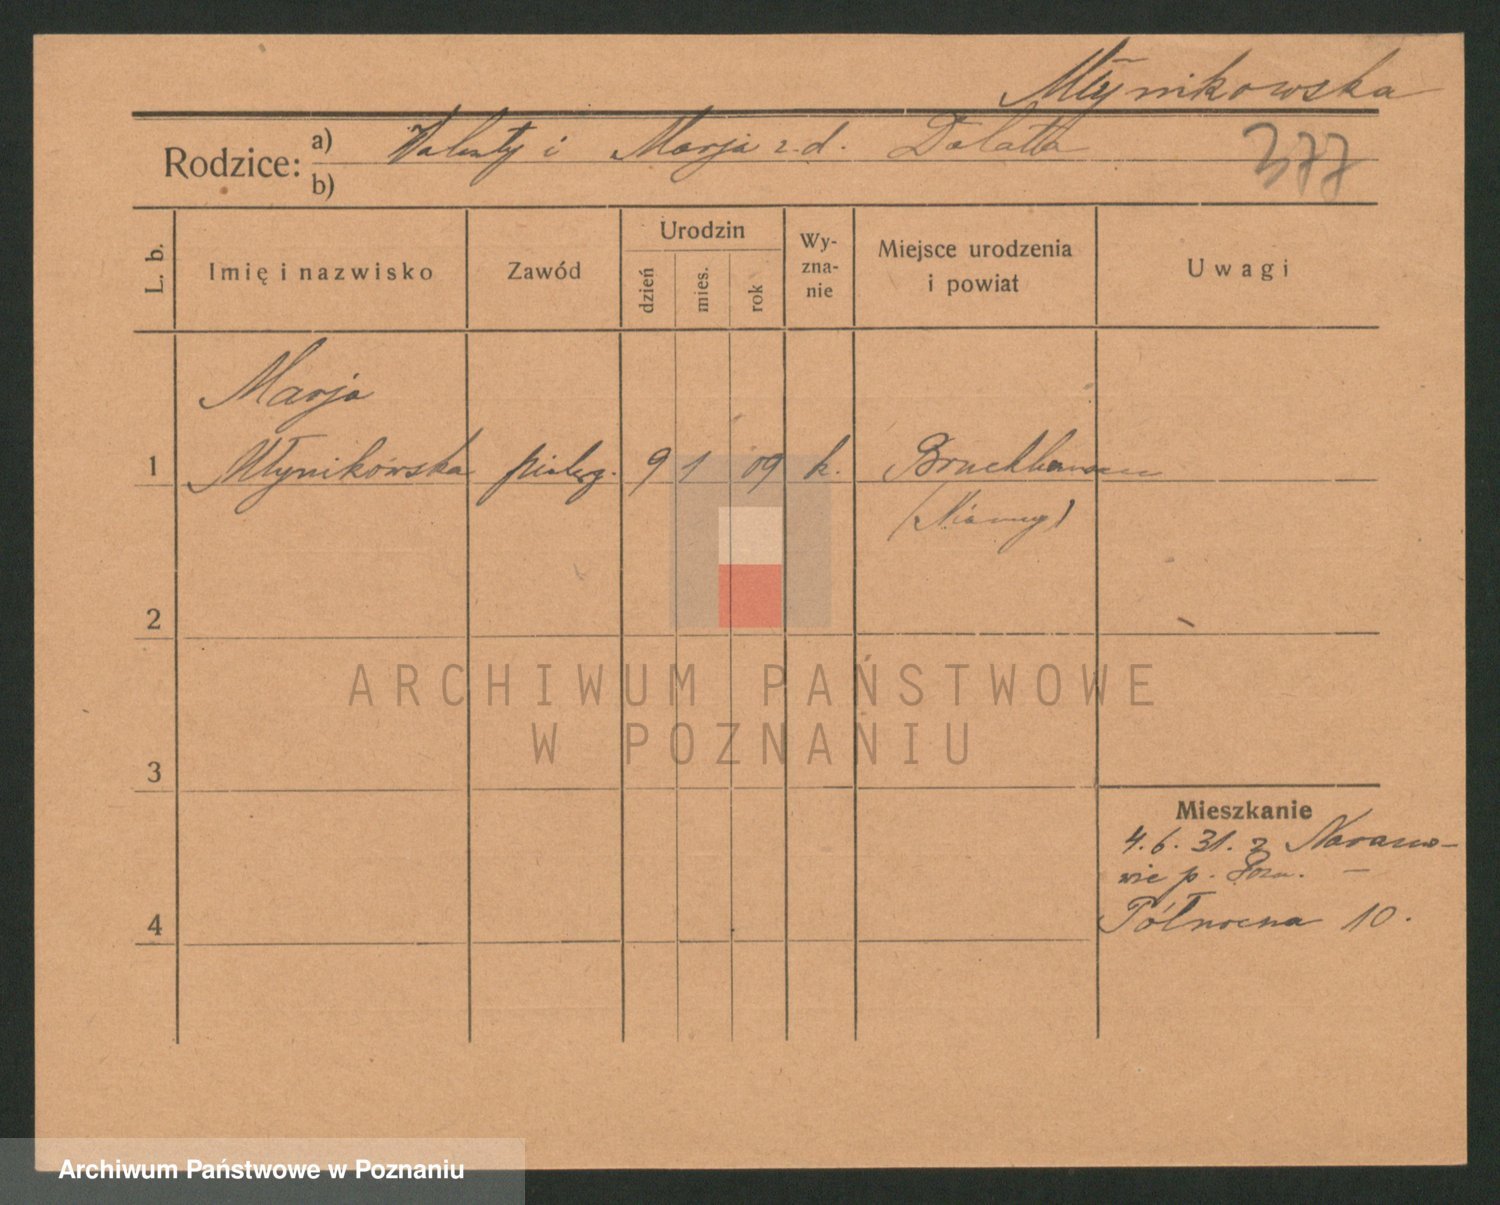 Młynikowska
Rodzice: a) Walenty i Marja z. d. Dolatta
b)
377
L. b.
Imię i nazwisko
Zawód
Urodzin
dzień
mies.
rok
Wy-
zna-
nie
Miejsce urodzenia
i powiat
Uwagi
Marja
1 Młynikowska pielęg. 9 1 09 k. Bruchhausen
(Niemcy)
2
3
4
Mieszkanie
4. 6. 31. z Naramo-
wic p. Pozn. –
Północna 10.
ARCHIWUM PAŃSTWOWE
W POZNANIU
Archiwum Państwowe w Poznaniu